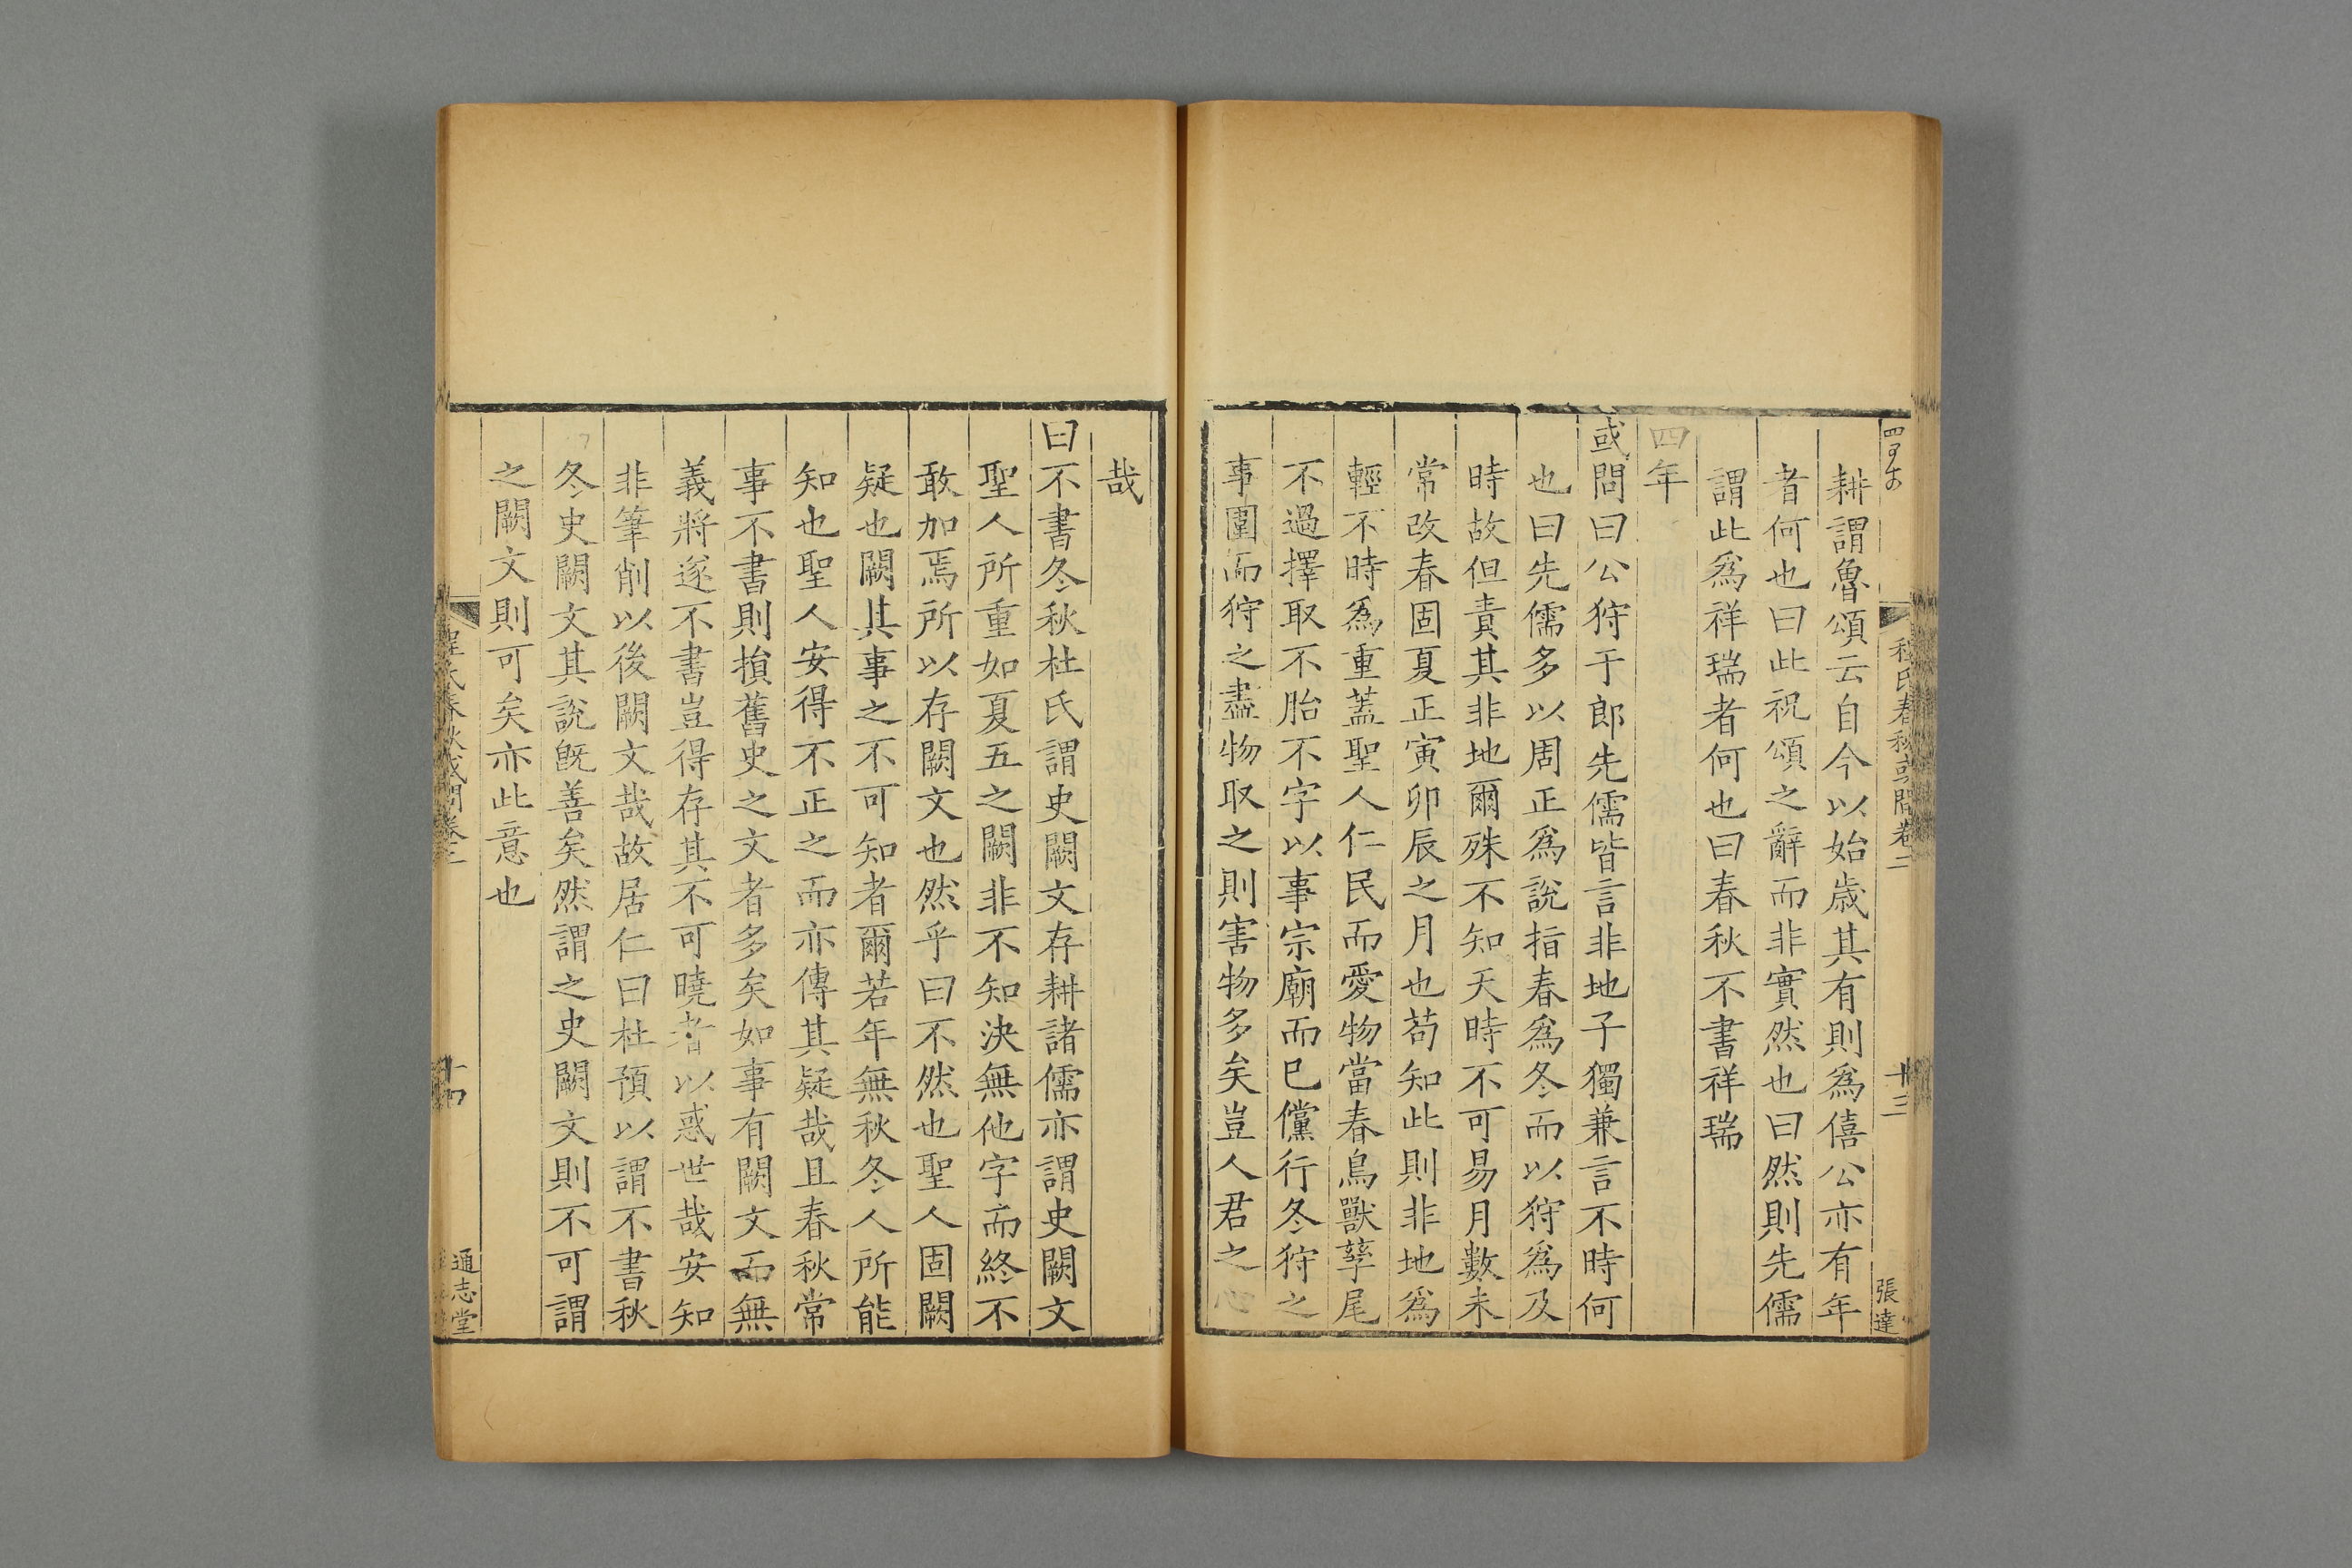 程氏春秋或問卷二
十三
張達
耕謂魯頌云自今以始歲其有則爲僖公亦有年
者何也曰此祝頌之辭而非實然也曰然則先儒
謂此爲祥瑞者何也曰春秋不書祥瑞
四年
或問曰公狩于郎先儒皆言非地子獨兼言不時何
也曰先儒多以周正爲說指春爲冬而以狩爲及
時故但責其非地爾殊不知天時不可易月數未
常改春固夏正寅卯辰之月也苟知此則非地爲
輕不時爲重蓋聖人仁民而愛物當春鳥獸孳尾
不過擇取不胎不字以事宗廟而已儻行冬狩之
事圍而狩之盡物取之則害物多矣豈人君之心
哉
曰不書冬秋杜氏謂史闕文存耕諸儒亦謂史闕文
聖人所重如夏五之闕非不知決無他字而終不
敢加焉所以存闕文也然乎曰不然也聖人固闕
疑也闕其事之不可知者爾若年無秋冬人所能
知也聖人安得不正之而亦傳其疑哉且春秋常
事不書則損舊史之文者多矣如事有闕文而無
義將遂不書豈得存其不可曉者以惑世哉安知
非筆削以後闕文哉故居仁曰杜預以謂不書秋
冬史闕文其說旣善矣然謂之史闕文則不可謂
之闕文則可矣亦此意也
程氏春秋或問卷二
十四
通志堂